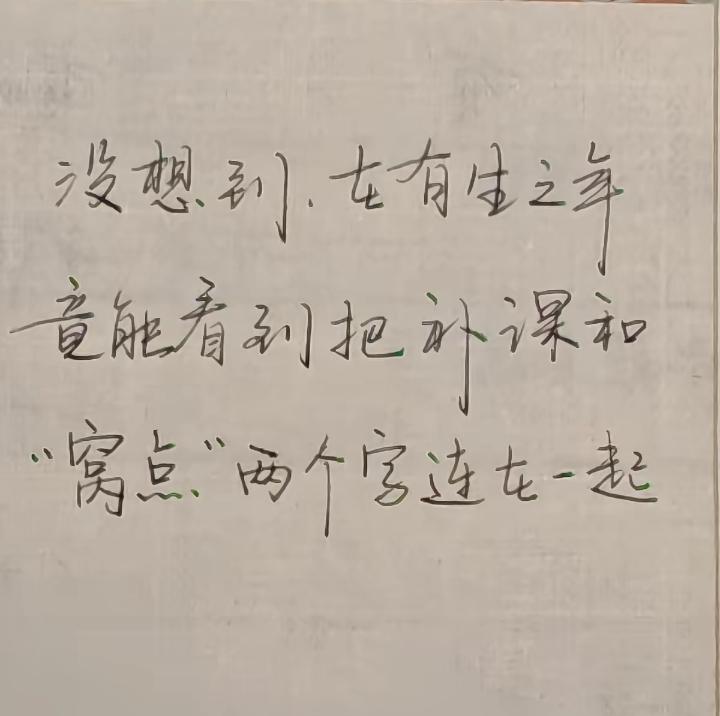 没想到.在有生之年
竟能看到把补课和
“窝点”两个字连在一起